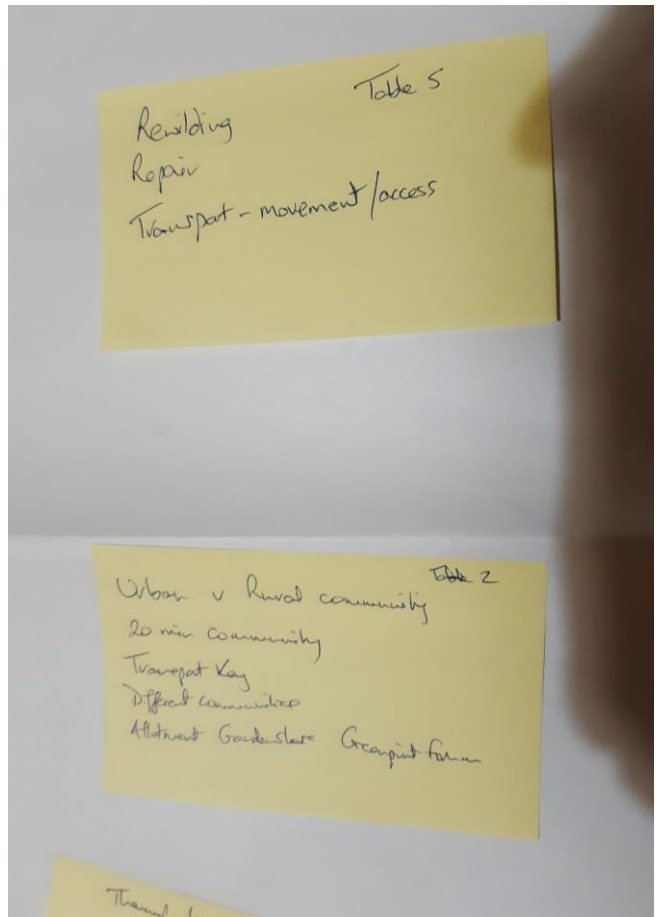 Table 5
Rewilding
Repair
Transpat - movement/access
Table 2
Urban v Rural community
20 min community
Transpat Key
Different communities
Allotment Gardenshare
Thermal